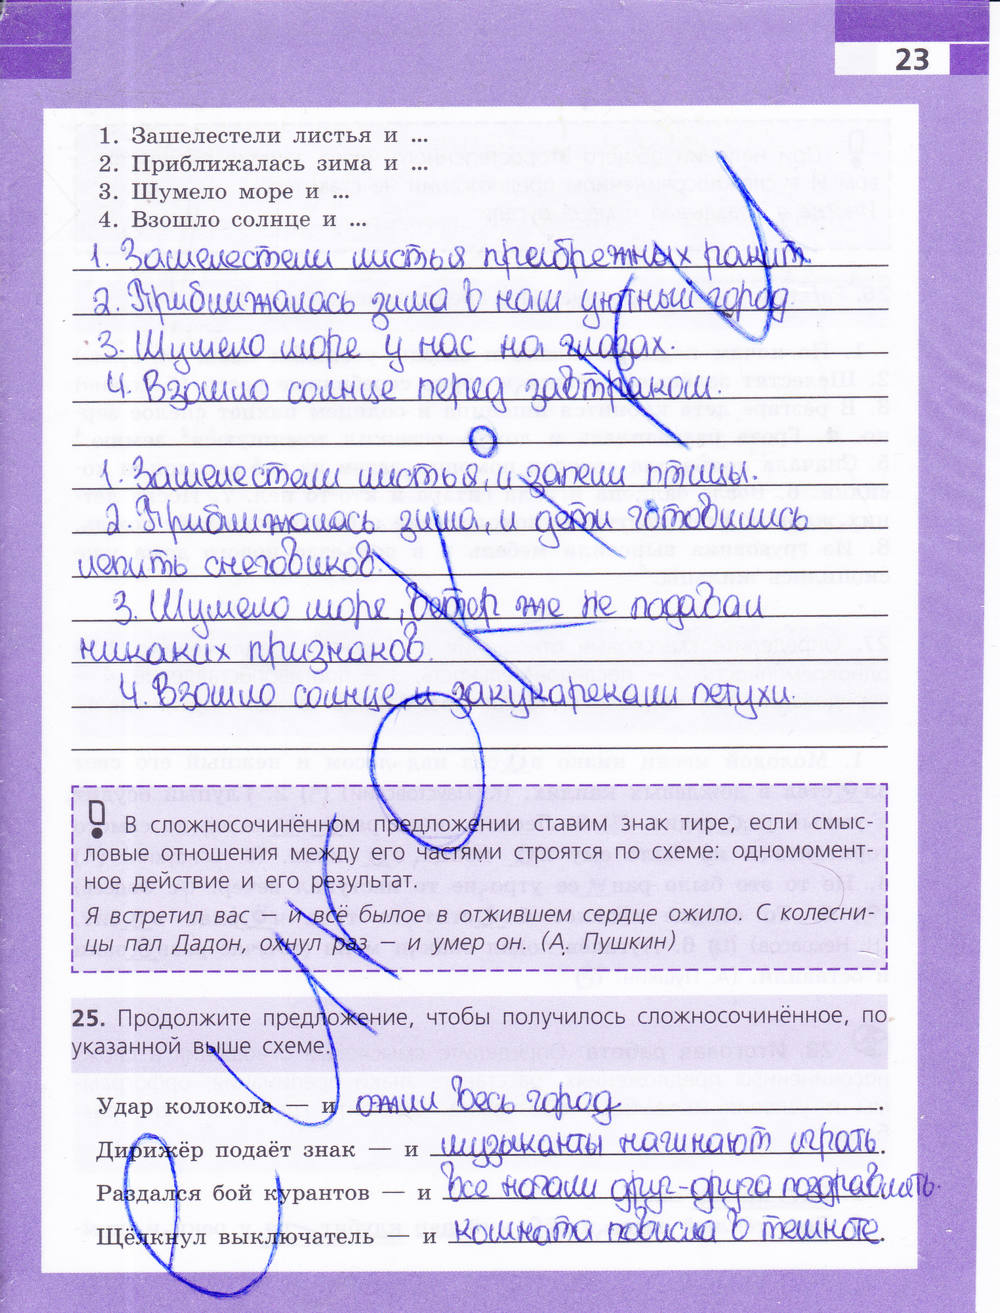 23
1. Зашелестели листья и ...
2. Приближалась зима и ...
3. Шумело море и ...
4. Взошло солнце и ...
1. Зашелестели листья преибрежных ракит.
2. Приближалась зима в наш уютный город.
3. Шумело море у нас на глазах.
4. Взошло солнце перед завтраком.
1. Зашелестели листья, и запели птицы.
2. Приближалась зима и дети готовились
лепить снеговиков.
3. Шумело море, ветер же не подавал
никаких признаков.
4. Взошло солнце, и закукарекали петухи.
В сложносочинённом предложении ставим знак тире, если смыс-
ловые отношения между его частями строятся по схеме: одномомент-
ное действие и его результат.
Я встретил вас – и всё былое в отжившем сердце ожило. С колесни-
цы пал Дадон, охнул раз – и умер он. (А. Пушкин)
25. Продолжите предложение, чтобы получилось сложносочинённое, по
указанной выше схеме.
Удар колокола — и ожил весь город.
Дирижёр подаёт знак — и музыканты начинают играть.
Раздался бой курантов — и все начали друг-друга поздравлять.
Щёлкнул выключатель — и комната повисла в темноте.